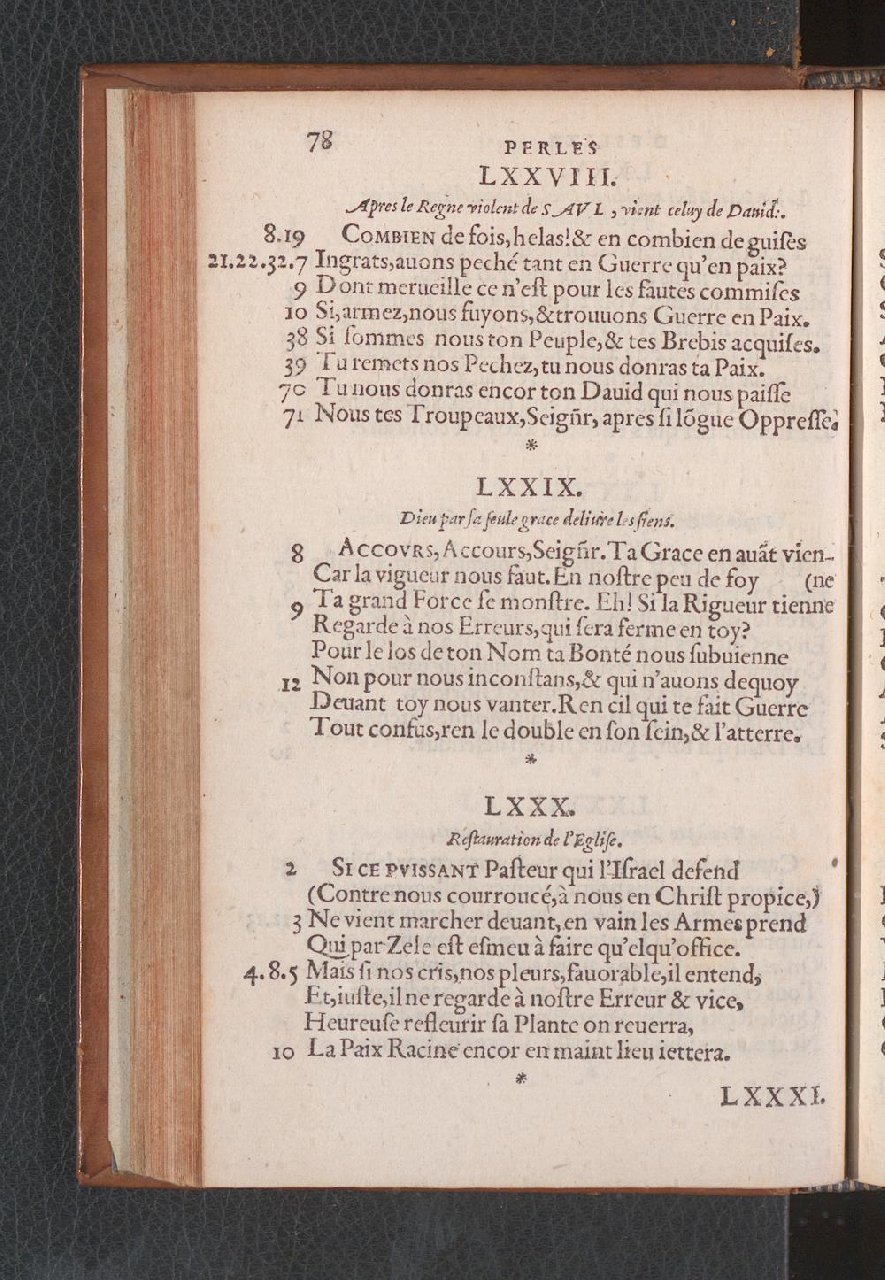 78
PERLES
LXXVIII.
Apres le Regne violent de SAVL, vient celuy de Dauid:.
8.19 COMBIEN de fois,helas!& en combien de guiſes
21.22.32.7 Ingrats,auons peché tant en Guerre qu'en paix?
9 Dont merueille ce n'eſt pour les fautes commiſes
10 Si,armez,nous fuyons,&trouuons Guerre en Paix.
38 Si ſommes nous ton Peuple,& tes Brebis acquiſes.
39 Tu remets nos Pechez,tu nous donras ta Paix.
70 Tu nous donras encor ton Dauid qui nous paiſſe
71 Nous tes Troupeaux,Seigñr, apres ſi lõgue Oppreſſe.
*
LXXIX.
Dieu par ſa ſeule grace deliure les ſiens.
8 ACCOVRS, Accours,Seigñr.Ta Grace en auãt vien-
Car la vigueur nous faut.En noſtre peu de foy (ne
9 Ta grand Force ſe monſtre. Eh! Si la Rigueur tienne
Regarde à nos Erreurs,qui ſera ferme en toy?
Pour le los de ton Nom ta Bonté nous ſubuienne
12 Non pour nous inconſtans,& qui n'auons dequoy
Deuant toy nous vanter.Ren cil qui te fait Guerre
Tout confus,ren le double en ſon ſein,& l'atterre.
*
LXXX.
Reſtauration de l'Egliſe.
2 SI CE PVISSANT Paſteur qui l'Iſrael defend
(Contre nous courroucé,à nous en Chriſt propice,)
3 Ne vient marcher deuant,en vain les Armes prend
Qui par Zele eſt eſmeu à faire qu'elqu'office.
4.8.5 Mais ſi nos cris,nos pleurs,fauorable,il entend,
Et,iuſte,il ne regarde à noſtre Erreur & vice,
Heureuſe refleurir ſa Plante on reuerra,
10 La Paix Racine encor en maint lieu iettera.
*
LXXXI.